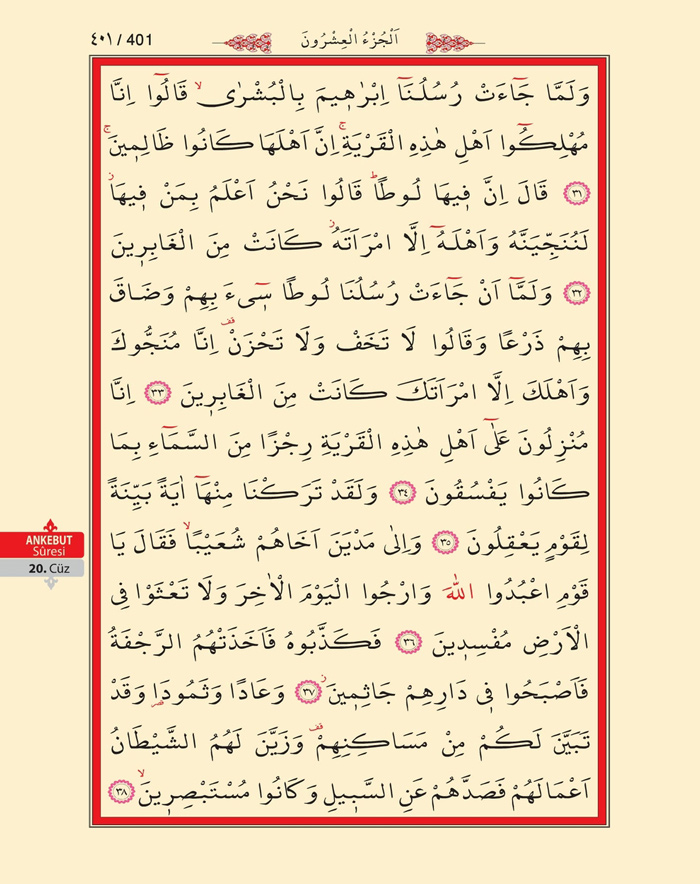 ٤٠١ / 401
اَلْجُزْءُ الْعِشْرُونَ
وَلَمَّا جَٓاءَتْ رُسُلُنَٓا اِبْرٰه۪يمَ بِالْبُشْرٰىۙ قَالُٓوا اِنَّا
مُهْلِكُٓوا اَهْلِ هٰذِهِ الْقَرْيَةِۚ اِنَّ اَهْلَهَا كَانُوا ظَالِم۪ينَۚ
﴿٣١﴾ قَالَ اِنَّ ف۪يهَا لُوطًاۜ قَالُوا نَحْنُ اَعْلَمُ بِمَنْ ف۪يهَاۘ
لَنُنَجِّيَنَّهُ وَاَهْلَهُٓ اِلَّا امْرَاَتَهُۘ كَانَتْ مِنَ الْغَابِر۪ينَ
﴿٣٢﴾ وَلَمَّٓا اَنْ جَٓاءَتْ رُسُلُنَا لُوطًا س۪ٓيءَ بِهِمْ وَضَاقَ
بِهِمْ ذَرْعًا وَقَالُوا لَا تَخَفْ وَلَا تَحْزَنْ۠ اِنَّا مُنَجُّوكَ
وَاَهْلَكَ اِلَّا امْرَاَتَكَ كَانَتْ مِنَ الْغَابِر۪ينَ ﴿٣٣﴾ اِنَّا
مُنْزِلُونَ عَلٰٓى اَهْلِ هٰذِهِ الْقَرْيَةِ رِجْزًا مِنَ السَّمَٓاءِ بِمَا
كَانُوا يَفْسُقُونَ ﴿٣٤﴾ وَلَقَدْ تَرَكْنَا مِنْهَٓا اٰيَةً بَيِّنَةً
لِقَوْمٍ يَعْقِلُونَ ﴿٣٥﴾ وَاِلٰى مَدْيَنَ اَخَاهُمْ شُعَيْبًاۙ فَقَالَ يَا
قَوْمِ اعْبُدُوا اللّٰهَ وَارْجُوا الْيَوْمَ الْاٰخِرَ وَلَا تَعْثَوْا فِي
الْاَرْضِ مُفْسِد۪ينَ ﴿٣٦﴾ فَكَذَّبُوهُ فَاَخَذَتْهُمُ الرَّجْفَةُ
فَاَصْبَحُوا ف۪ي دَارِهِمْ جَاثِم۪ينَۘ ﴿٣٧﴾ وَعَادًا وَثَمُودَا۬ وَقَدْ
تَبَيَّنَ لَكُمْ مِنْ مَسَاكِنِهِمْ۠ وَزَيَّنَ لَهُمُ الشَّيْطَانُ
اَعْمَالَهُمْ فَصَدَّهُمْ عَنِ السَّب۪يلِ وَكَانُوا مُسْتَبْصِر۪ينَۙ ﴿٣٨﴾
ANKEBUT
Sûresi
20. Cüz